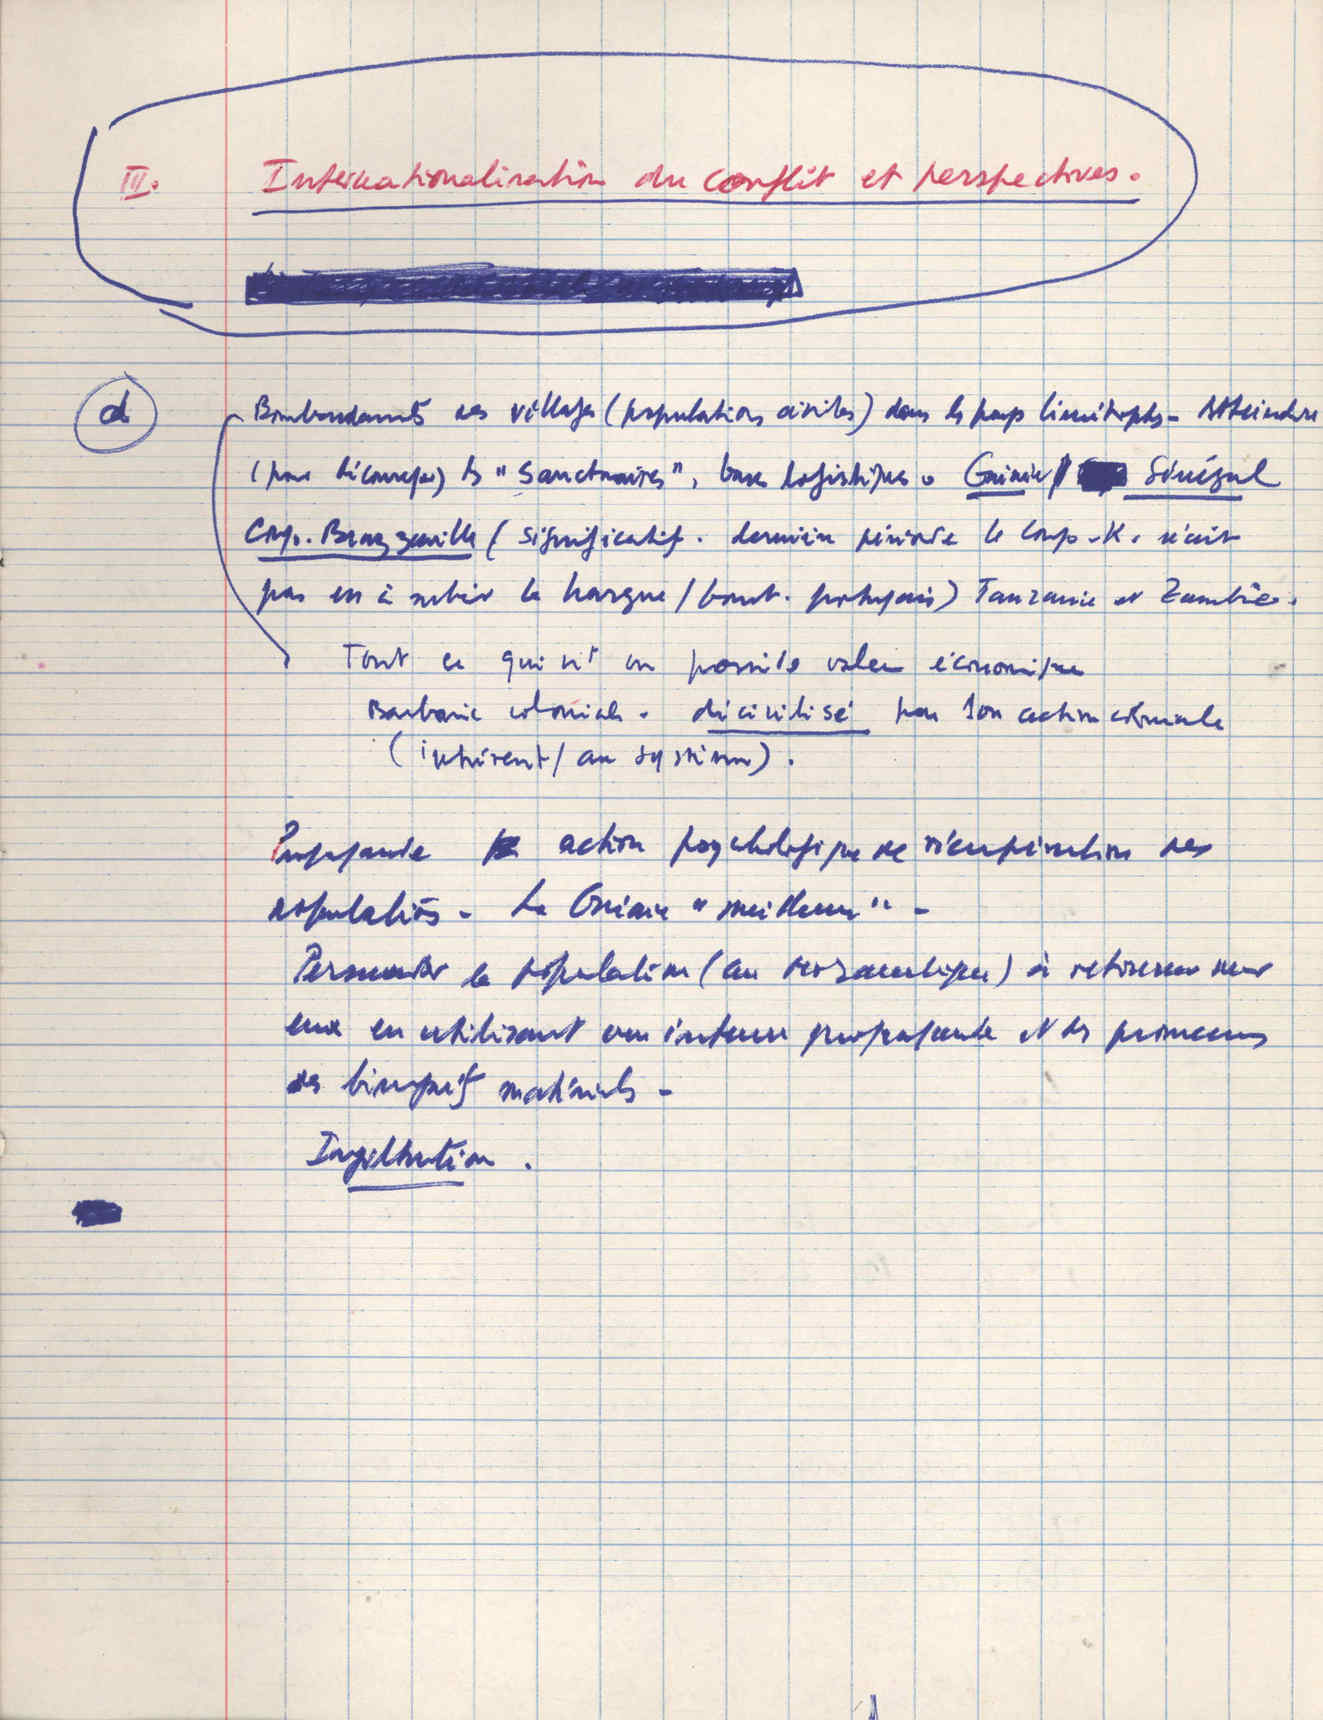 III. Internationalisation du conflit et perspectives.
d
Bombardements des villages (populations civiles) dans les pays limitrophes - Atteindre
(pour décourager) les "Sanctuaires", bases logistiques. Guinée / Sénégal
Congo. Brazzaville (significatif. dernière période le Congo-K. n'avait
pas eu à subir la hargne / bomb. portugais) Tanzanie et Zambie.
Tout ce qui vit en possible valeur économique
Barbarie coloniale. décivilisé par son action coloniale
(inhérent / au système).
Propagande action psychologique de récupération des
populations - La Guinée "meilleure" -
Persuader la population (au Mozambique) à retourner
eux en utilisant une intense propagande et des promesses
des bienfaits matériels -
Infiltration.